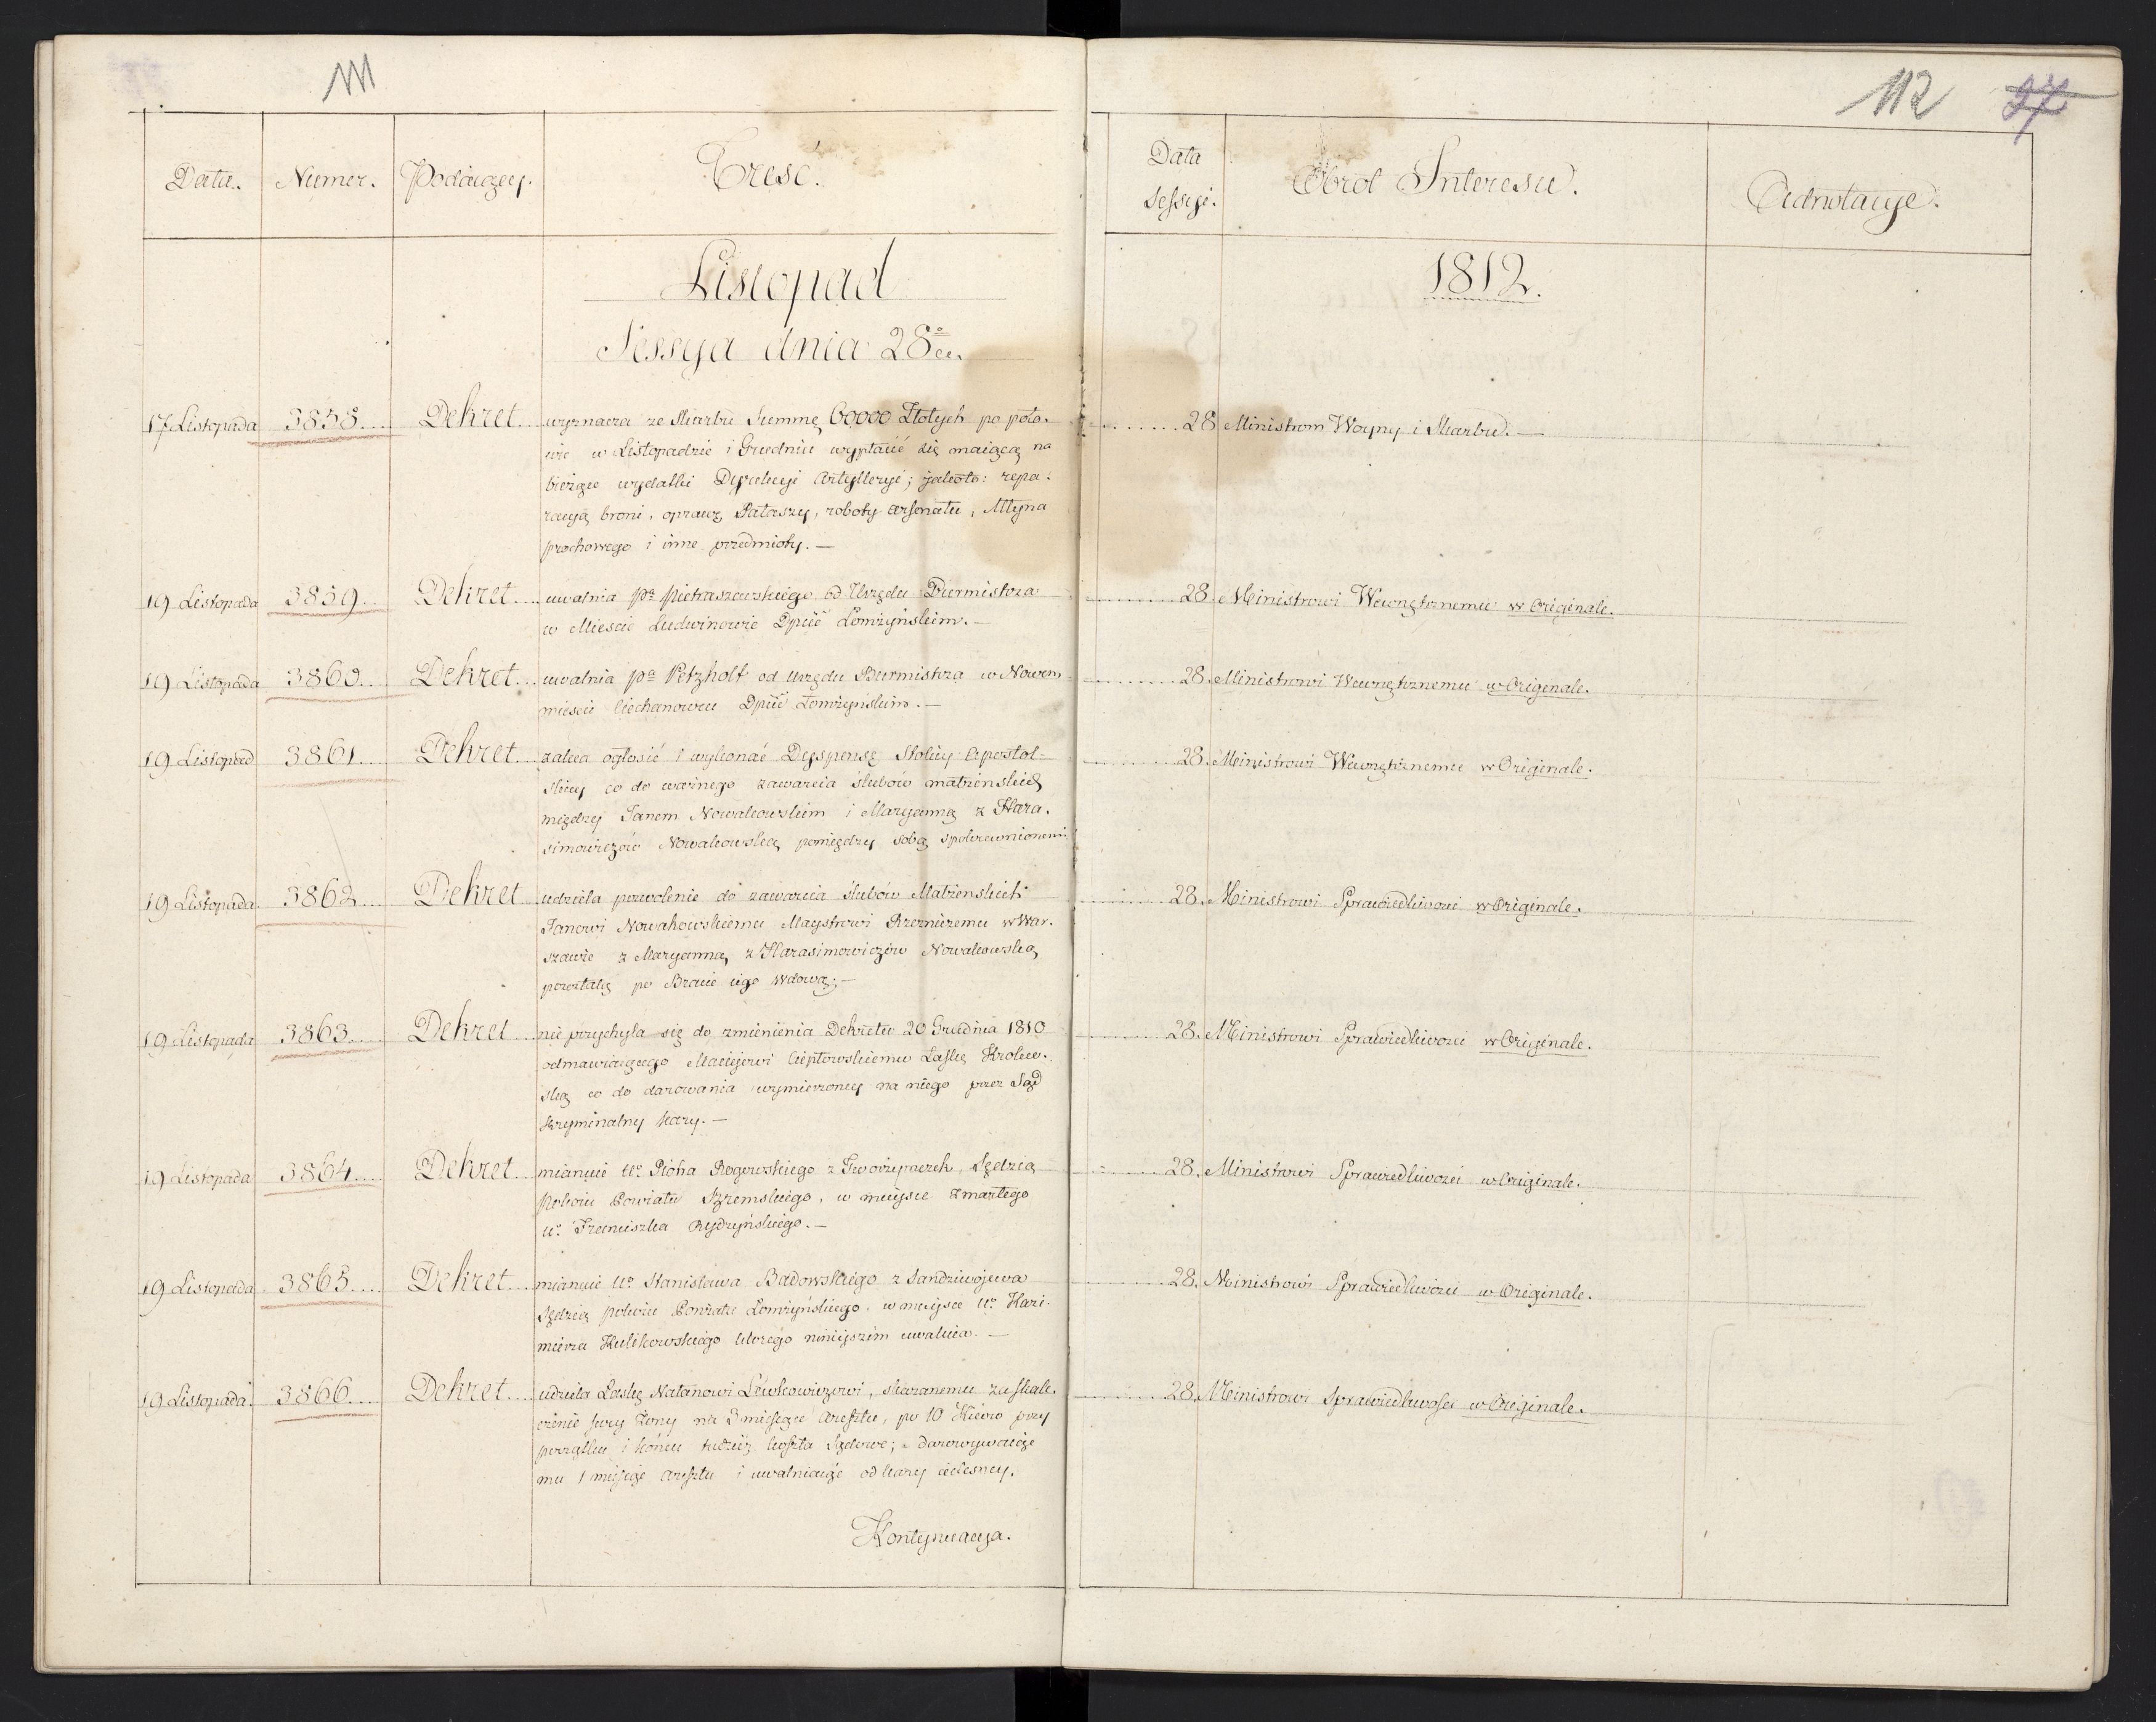 111
112 97
Data. Numer. Podaiący. Treść. Data Sessyi. Obrot Interesu. Adnotacye.
Listopad 1812.
Sessya dnia 28º
17 Listopada 3858 Dekret wyznacza ze Skarbu Summę 60000 Złotych po poło- 28 Ministrom Woyny i Skarbu. —
wie w Listopadzie i Grudniu wypłacić się maiącą na
bieżące wydatki Dyrekcyi Artylleryi; jakoto: repa-
racyą broni, oprawę Pałaszy, roboty Arsenału, Młyna
prochowego i inne przedmioty. —
19 Listopada 3859 Dekret uwalnia Pª Pietraszewskiego od Urzędu Burmistrza 28. Ministrowi Wewnętrznemu w Originale.
w Mieście Ludwinowie Dptcie Łomżyńskim. —
19 Listopada 3860 Dekret uwalnia Pª Petzholt od urzędu Burmistrza w Nowem 28. Ministrowi Wewnętrznemu w Originale.
mieście Ciechanowcu Dptcie Łomżynskim. —
19 Listopad 3861 Dekret zaleca ogłosić i wykonać Dyspensę Stolicy Apostol- 28. Ministrowi Wewnętrznemu w Originale.
skiey co do ważnego zawarcia ślubów małżenskich
między Janem Nowakowskim i Maryanną z Hara-
simowiczów Nowakowską pomiędzy sobą spokrewnionemi
19 Listopada 3862 Dekret udziela pozwolenie do zawarcia ślubów Małżenskich 28. Ministrowi Sprawiedliwości w Originale.
Janowi Nowakowskiemu Maystrowi Rzeźniczemu w War-
szawie z Maryanną z Harasimowiczów Nowakowską
pozostałą po Bracie iego wdową; —
19 Listopada 3863 Dekret nie przychyla się do zmienienia Dekretu 20 Grudnia 1810 28. Ministrowi Sprawiedliwości w Originale.
odmawiaiącego Maciejowi Ciepłowskiemu Łaskę Krolew-
ską co do darowania wymierzoney na niego przez Sąd
kryminalny kary. —
19 Listopada 3864 Dekret mianuie Uº Piotra Rogowskiego z Sędzią 28. Ministrowi Sprawiedliwości w Originale.
Pokoiu Powiatu Szremskiego, w mieysce zmarłego
Uº Franciszka Rydzyńskiego. —
19 Listopada 3865 Dekret mianuie Uº Stanisława Badowskiego z Sandziwojewa 28. Ministrowi Sprawiedliwości w Originale.
Sędzią pokoiu Powiatu Łomżyńskiego, w mieysce Uº Kazi-
mierza Kulikowskiego ktorego ninieyszim uwalnia. —
19 Listopada 3866 Dekret udziela Łaskę Natanowi Lewkowiczowi, skazanemu za skale- 28. Ministrowi Sprawiedliwości w Originale.
czenie swey Żony na 3 miesiące Aresztu, po 10 Kiiów przy
początku i końcu tudzież koszta Sądowe; darowywaiąc
mu 1 miesiąc Aresztu i uwalniaiąc od kary cielesney.
Kontynuacya.